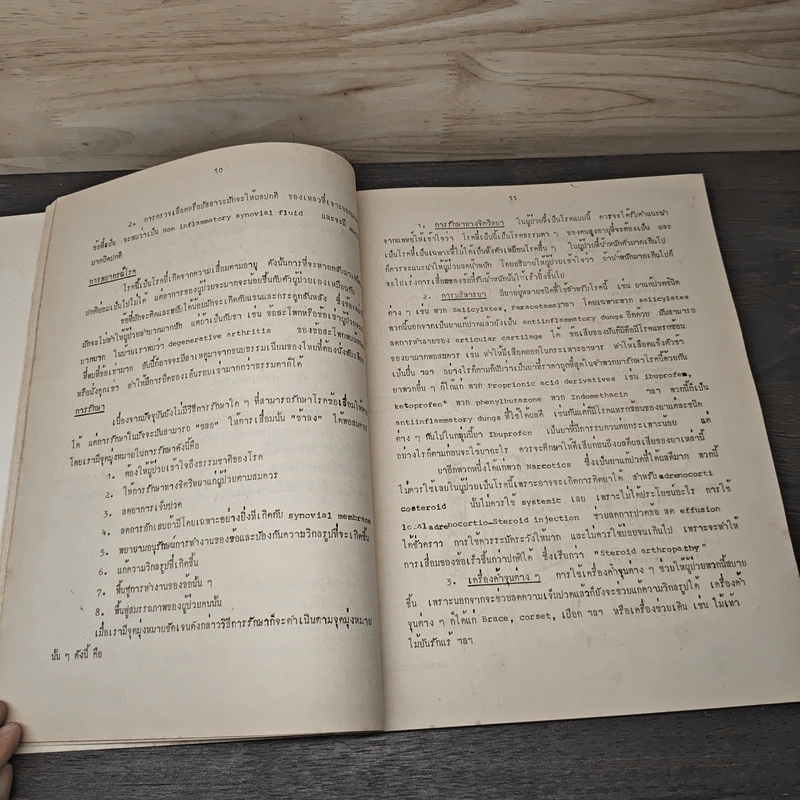 30
2. การตรวจเลือดหรือปัสสาวะมักจะให้ผลปกติ ของเหลวที่เจาะออกมา
ข้อที่เป็น จะพบว่าเป็น Non inflammatory synovial fluid และจะมี
มากผิดปกติ
การพยากรณ์โรค
โรคนี้เป็นโรคที่เกิดจากความเสื่อมตามอายุ ดังนั้นการที่จะหายกลับมา
ปกติย่อมเป็นไปไม่ได้ แต่อาการของผู้ป่วยจะมากจะน้อยขึ้นกับตัวผู้ป่วยเองเหมือนกัน
ข้อที่มักจะติดและขยับได้น้อยมักจะเกิดกับแขนและกระดูกสันหลัง ซึ่งข้อ
มักจะไม่ทำให้ผู้ป่วยลำบากมากนัก แต่ถ้าเป็นกับขา เช่น ข้อสะโพกหรือข้อเข่าผู้ป่วยจะ
มากมาก ในบ้านเราพบว่า degenerative arthritis ของข้อสะโพกพบน้อย
ที่พบที่ข้อเขามาก อันนี้ก็อาจจะมีสาเหตุมาจากขนบธรรมเนียมของไทยที่ต้องนั่งพับเพียบ
หรือนั่งคุกเข่า ทำให้มีการยืดของเอ็นรอบเข่ามากกว่าธรรมดาก็ได้
การรักษา
เนื่องจากปัจจุบันยังไม่มีวิธีการรักษาใด ๆ ที่สามารถรักษาโรคข้อเสื่อมให้หาย
ได้ แต่การรักษาในปัจจุบันสามารถ "ชลอ" ให้การเสื่อมนั้น "ช้าลง" ได้พอสมควร
โดยเรามีจุดมุ่งหมายในการรักษาดังนี้คือ
1. ต้องให้ผู้ป่วยเข้าใจถึงธรรมชาติของโรค
2. ให้การรักษาทางจิตวิทยาแก่ผู้ป่วยตามสมควร
3. ลดอาการเจ็บปวด
4. ลดการอักเสบถ้ามีโดยเฉพาะอย่างยิ่งที่เกิดกับ synovial membrane
5. พยายามอนุรักษ์การทำงานของข้อและป้องกันความวิกลรูปที่จะเกิดขึ้น
6. แก้ความวิกลรูปที่เกิดขึ้น
7. ฟื้นฟูการทำงานของข้อนั้น ๆ
8. ฟื้นฟูสมรรถภาพของผู้ป่วยคนนั้น
เมื่อเรามีจุดมุ่งหมายชัดเจนดังกล่าววิธีการรักษาก็จะดำเป็นตามจุดมุ่งหมาย
นั้น ๆ ดังนี้ คือ
31
1. การรักษาทางจิตวิทยา ในผู้ป่วยที่เป็นโรคแบบนี้ ควรจะได้รับคำแนะนำ
จากแพทย์ให้เข้าใจว่า โรคที่เป็นนี้เป็นโรคธรรมดา ๆ ของคนสูงอายุที่จะต้องเป็น และ
เป็นโรคที่เป็นเฉพาะที่ไม่ได้เป็นทั้งตัวเหมือนโรคอื่น ๆ ในผู้ป่วยที่น้ำหนักตัวมากเกินไป
ก็ควรจะแนะนำให้ผู้ป่วยลดน้ำหนัก โดยอธิบายให้ผู้ป่วยเข้าใจว่า ถ้าน้ำหนักมากเกินไปก็
จะไปเร่งการเสื่อมของข้อที่รับน้ำหนักนั้นให้เร็วยิ่งขึ้นไป
2. การบริหารยา มียาอยู่หลายชนิดที่ใช้สำหรับโรคนี้ เช่น ยาแก้ปวดชนิด
ต่าง ๆ เช่น พวก Salicylates, Paracetamolฯลฯ โดยเฉพาะพวก salicylates
พวกนี้นอกจากเป็นยาแก้ปวดแล้วยังเป็น antiinflammatory dungs อีกด้วย มันสามารถ
ลดการทำลายของ articular cartilage ได้ ข้อเสียของมันก็มีคือมีโรคแทรกซ้อน
ของยามากพอสมควร เช่น ทำให้มีเลือดออกในกระเพาะอาหาร ทำให้เลือดแข็งตัวช้า
เป็นอื่น ฯลฯ อย่างไรก็ตามก็นับว่าเป็นยาที่ราคาถูกที่สุดในจำพวกยารักษาโรคนี้ด้วยกัน
ยาพวกอื่น ๆ ก็ได้แก่ พวก Proprionic acid derivatives เช่น ibuprofen,
ketoprofen พวก phenylbutazone พวก Indomethacin ฯลฯ พวกนี้ก็เป็น
antiinflammatory dungs ที่ใช้ได้ผลดี เช่นกันแต่ก็มีโรคแทรกซ้อนของยาแต่ละชนิด
ต่าง ๆ กันไปในกลุ่มนี้ยา Ibuprofen เป็นยาที่มีการรบกวนต่อกระเพาะน้อย แต่
อย่างไรก็ตามก่อนจะใช้ยาอะไร ควรจะศึกษาให้ดีเสียก่อนถึงผลดีผลเสียของยาเหล่านี้
ยาอีกพวกหนึ่งได้แก่พวก Narcotics ซึ่งเป็นยาแก้ปวดที่ได้ผลดีมาก พวกนี้
ไม่ควรใช้เลยในผู้ป่วยเป็นโรคนี้เพราะอาจจะเกิดการติดยาได้ สำหรับadrenocorti
costeroid นั้นไม่ควรใช้ systemic เลย เพราะไม่ได้ประโยชน์อะไร การใช้
localadrenocortio-Steroid injection ช่วยลดการปวดข้อ ลด effusion
ได้ชั่วคราว การใช้ควรระมัดระวังให้มาก และไม่ควรใช้บ่อยจนเกินไป เพราะจะทำให้
การเสื่อมของข้อเร็วขึ้นกว่าปกติได้ ซึ่งเรียกว่า "Steroid arthropathy"
3. เครื่องค้ำจุนต่าง ๆ การใช้เครื่องค้ำจุนต่าง ๆ ช่วยให้ผู้ป่วยพวกนี้สบาย
ขึ้น เพราะนอกจากจะช่วยลดความเจ็บปวดแล้วก็ยังจะช่วยแก้ความวิกลรูปได้ เครื่องค้ำ
จุนต่าง ๆ ก็ได้แก่ Brace, corset, เฝือก ฯลฯ หรือเครื่องช่วยเดิน เช่น ไม้เท้า
ไม้ยันรักแร้ ฯลฯ